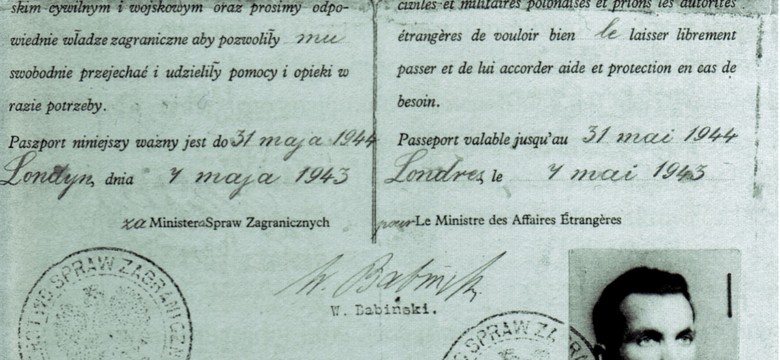 skim cywilnym i wojskowym oraz prosimy odpo-
wiednie władze zagraniczne aby pozwoliły mu
swobodnie przejechać i udzieliły pomocy i opieki w
razie potrzeby.
Paszport niniejszy ważny jest do 31 maja 1944
Londyn, dnia 7 maja 1943
za Ministera Spraw Zagranicznych
civiles et militaires polonaises et prions les autorités
étrangères de vouloir bien le laisser librement
passer et de lui accorder aide et protection en cas de
besoin.
Passeport valable jusqu'au 31 mai 1944
Londres, le 7 mai 1943
pour Le Ministre des Affaires Étrangères
W. Babiński
W. Babiński.
SPRAW ZAGRANICZN
SPRAW ZA